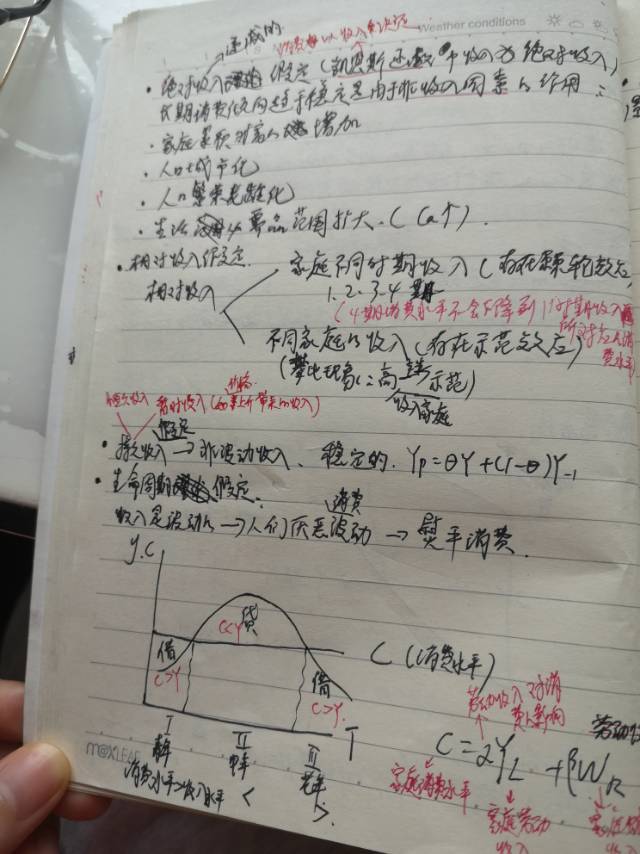 递减的
消费以收入来决定
Weather conditions
· 绝对收入假定(凯恩斯 收入为绝对收入)
长期消费倾向趋于稳定是由于非收入因素的作用:
· 家庭累积财富的增加
· 人口城市化
· 人口老龄化
· 生活必需品范围扩大.(Ca↑).
· 相对收入假定.
相对收入
家庭不同时期收入(存在棘轮效应)
1.2.3.4 期
(4期消费水平不会下降到1时期收入
所对应的消
费水平)
不同家庭的收入(存在示范效应)
(攀比现象:高 示范)
收入家庭
价格
恒久收入 暂时收入( 上升带来的收入)
假定
· 持久收入 → 非波动收入、稳定的. Yp=θY+(1-θ)Y-1
· 生命周期假定.
消费
收入是波动的 → 人们厌恶波动 → 熨平消费.
y.c
贷
C<Y
借
C>Y
借
C>Y.
C(消费水平)
I II III T
青年 中年 老年
消费水平>收入水平 < >
劳动收入对消
费的影响
C=αYL+βWR
家庭消费水平
家庭劳动
收入
劳动收
MAXLEAF